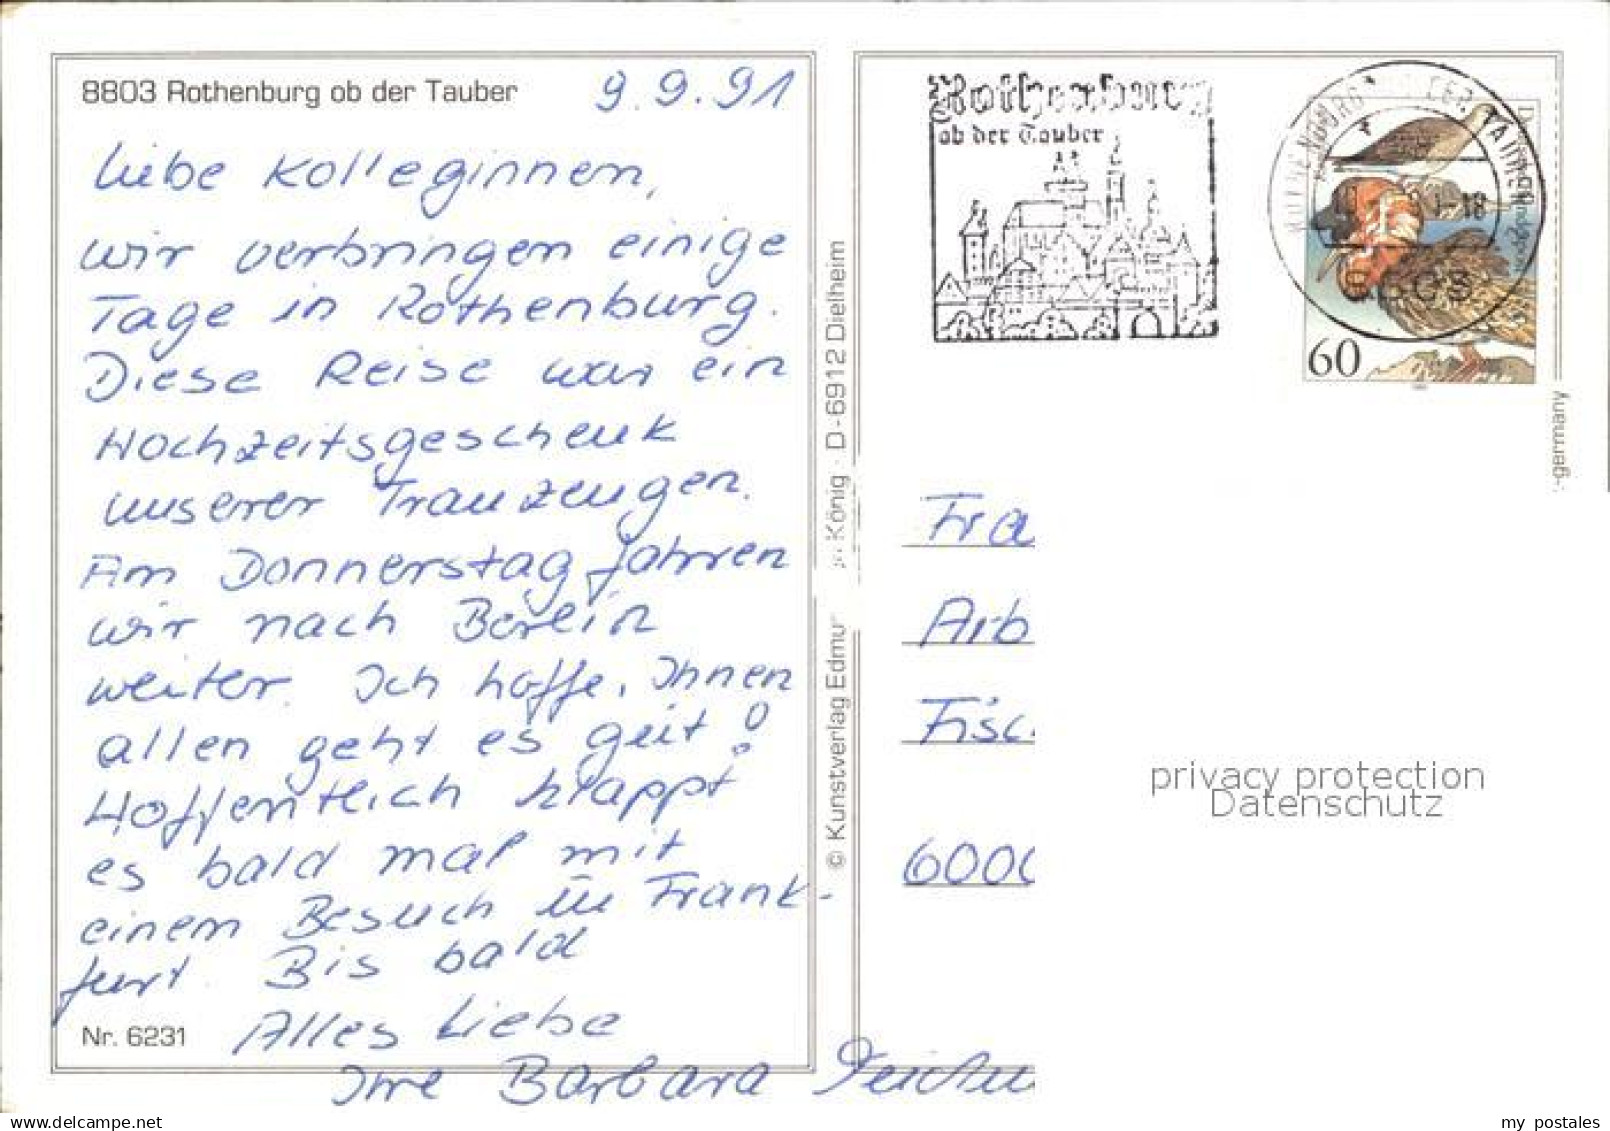 8803 Rothenburg ob der Tauber
9.9.91
Liebe Kolleginnen,
wir verbringen einige
Tage in Rothenburg.
Diese Reise war ein
Hochzeitsgeschenk
unserer Trauzeugen.
Am Donnerstag fahren
wir nach Berlin
weiter. Ich hoffe, Ihnen
allen geht es gut!
Hoffentlich klappt
es bald mal mit
einem Besuch in Frank-
furt. Bis bald
Alles Liebe
Ihre Barbara
Nr. 6231
© Kunstverlag Edmu
König · D-6912 Dielheim
Rothenburg
ob der Tauber
60
-germany
Fra
Arb
Fisc
6000
privacy protection
Datenschutz
delcampe.net
my_postales